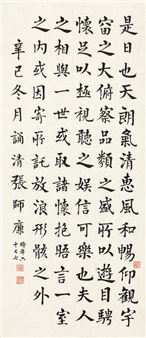 是日也天朗氣清惠風和暢仰觀宇
宙之大俯察品類之盛所以遊目騁
懷足以極視聽之娛信可樂也夫人
之相與一世或取諸懷抱晤言一室
之內或因寄所託放浪形骸之外
辛巳冬月 誦清張師廉
時年六十又七